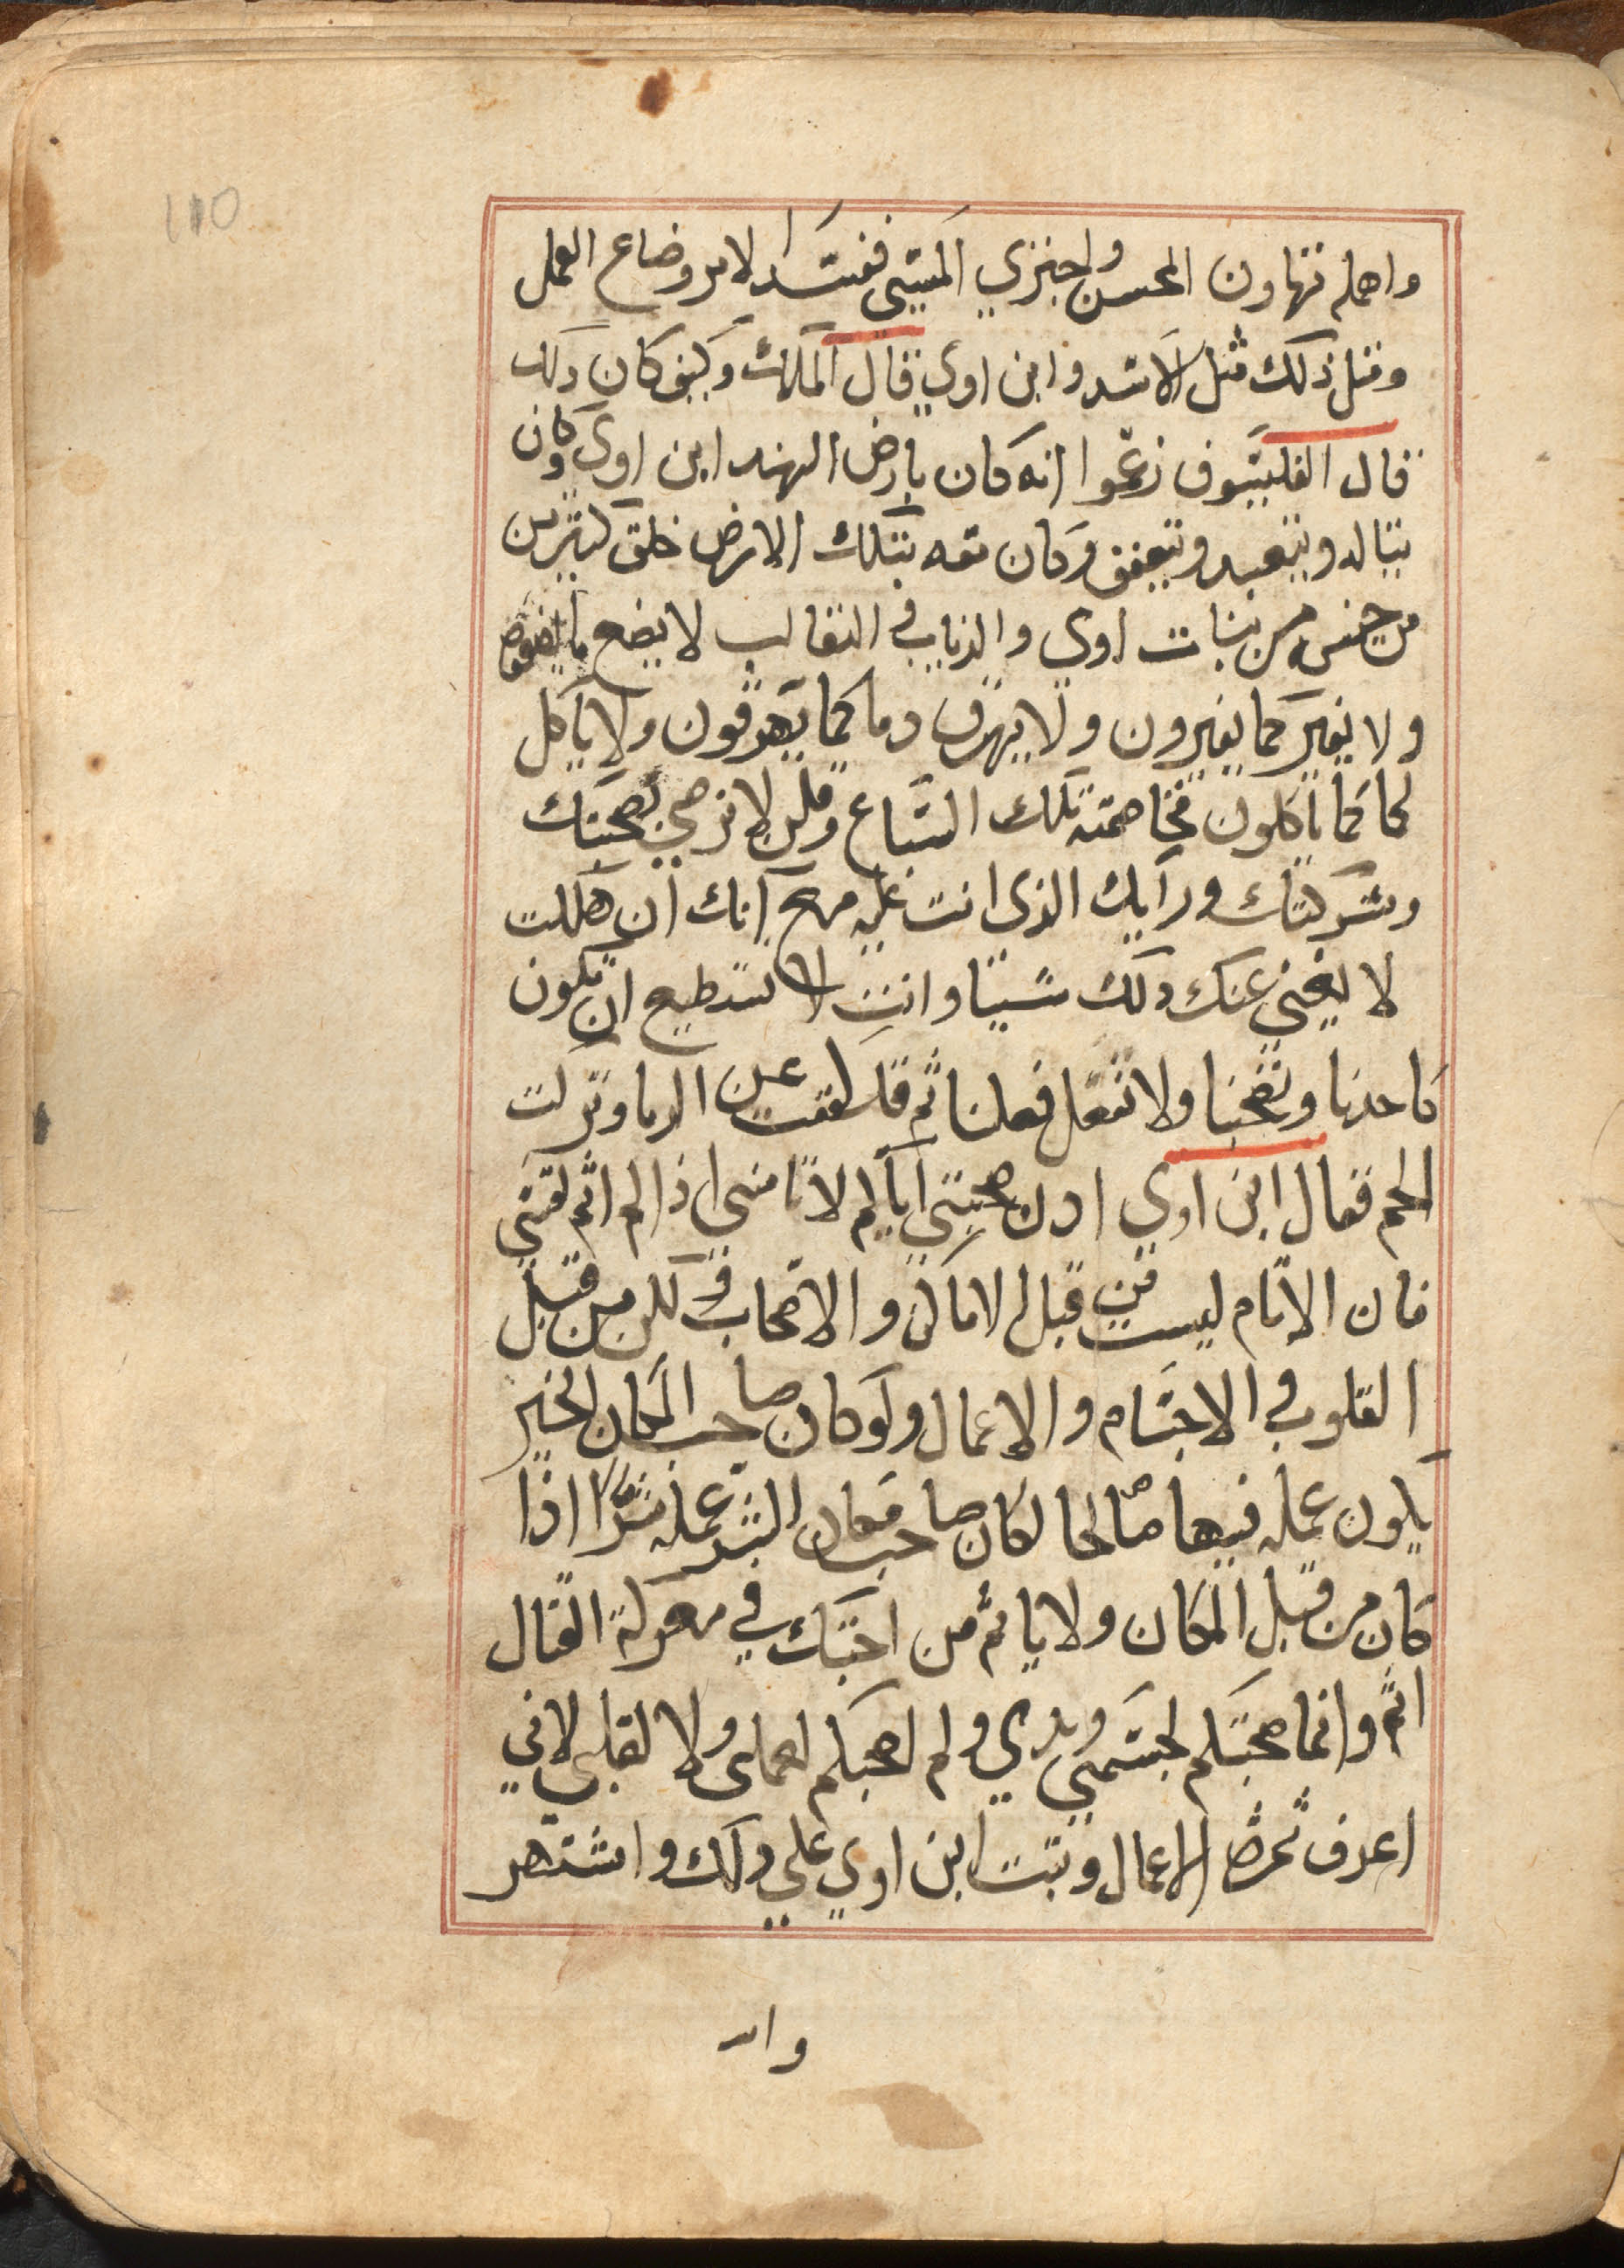 110
واهله تهاون المحسن واجتري المسي ففسد الامر وضاع العمل
ومثل ذلك مثل الاسد وابن اوي قال الملك وكيف كان ذلك
قال الفيلسوف زعموا انه كان بارض الهند ابن اوي وكان
يتاله ويتعبد ويتعفف وكان معه بتلك الارض خلق كثيرين
من جنس من بنات اوي والذياب في الثعالب لا يضع ما يضعون
ولا يغير كما يغيرون ولا يهرق دما كما يهرقون ولا ياكل
لحما كما ياكلون فخاصمته تلك السباع وقلن لا نرضي بصحبتك
وشركتك ورايك الذي انت عليه مع انك ان هللت
لا يغني عنك ذلك شييا وانت لا تستطيع ان تكون
كاحدنا وتصحبنا ولا تفعل فعلنا ثم قد كففت عن الدما وتركت
اللحم فقال ابن اوي ان صحبتي اياكم لا تامنى اذا لم اثم لنفسي
فان الاثام ليست من قبل الاماكن والاصحاب ولكن من قبل
القلوب في الاجسام والاعمال ولو كان صاحب المكان الخير
يكون عمله فيها صالحا لكان صاحب مكان الشر عمله شرا اذا
كان من قبل المكان ولا ياثم من احبك في معركة القتال
اثم وانما صحبتكم لجسمي وبدي ولم اصحبكم لعملى ولا لقلبى لاني
اعرف ثمرة الاعمال وثبت ابن اوي علي ذلك واشتهر